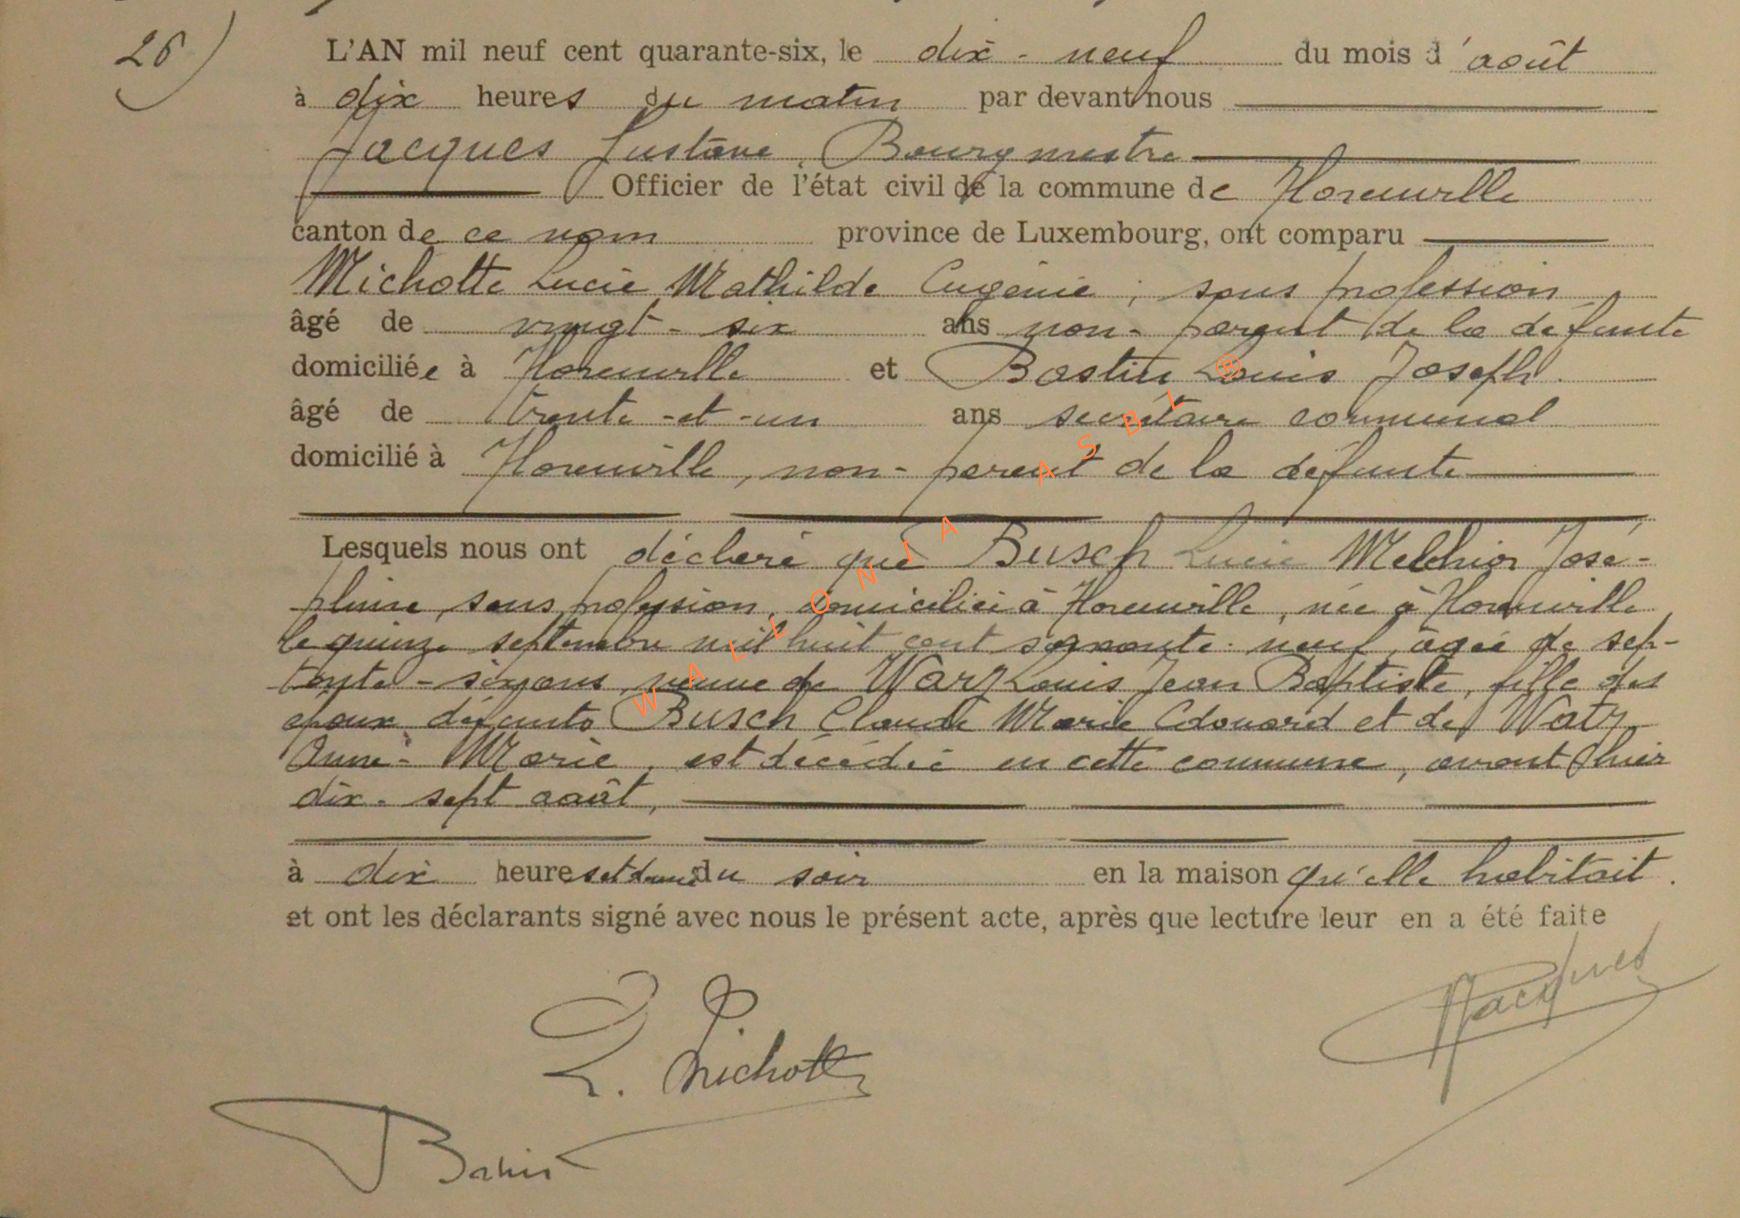 26)
L'AN mil neuf cent quarante-six, le dix-neuf du mois d'août
à dix heures du matin par devant nous
Jacques Gustave, Bourgmestre
Officier de l'état civil de la commune de Florenville
canton de ce nom province de Luxembourg, ont comparu
Michotte Lucie Mathilde Eugénie, sans profession
âgé de vingt-six ans non-parent de la défunte
domiciliée à Florenville et Bastin Louis Joseph.
âgé de trente-et-un ans secrétaire communal
domicilié à Florenville, non-parent de la défunte
Lesquels nous ont déclaré que Busch Lucie Melchior José-
phine, sans profession, domiciliée à Florenville, née à Florenville
le quinze septembre mil huit cent soixante-neuf, âgée de sep-
tante-six ans, veuve de Warz Louis Jean Baptiste, fille des
époux défunts Busch Claude Marie Edouard et de Watz
Anne-Marie, est décédée en cette commune, avant hier
dix-sept août,
à dix heures et demie du soir en la maison qu'elle habitait.
et ont les déclarants signé avec nous le présent acte, après que lecture leur en a été faite
Jacques
L. Michotte
Bastin
WALLONIA ASBL ®